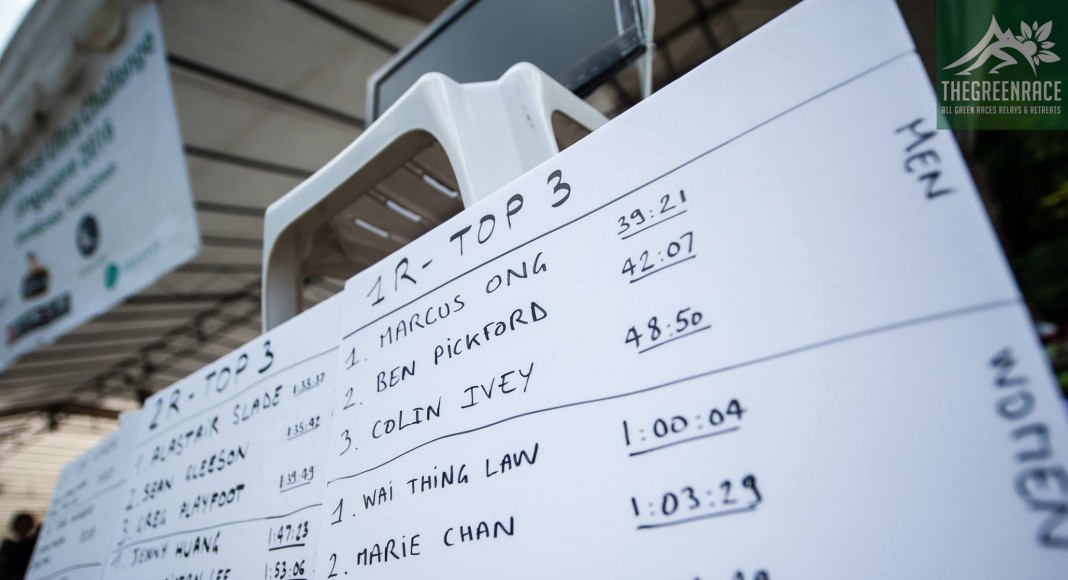 THEGREENRACE
ALL GREEN RACES RELAYS & RETREATS
Ultra Challenge
Singapore 2016
1R - TOP 3
MEN
1. MARCUS ONG 39:21
2. BEN PICKFORD 42:07
3. COLIN IVEY 48:50
WOMEN
1. WAI THING LAW 1:00:04
2. MARIE CHAN 1:03:29
2R - TOP 3
1. ALASTAIR SLADE 1:33:37
2. SEAN GLEESON 1:35:42
3 GREG PLAYFOOT 1:39:49
1. JENNY HUANG 1:47:23
LEE 1:53:06